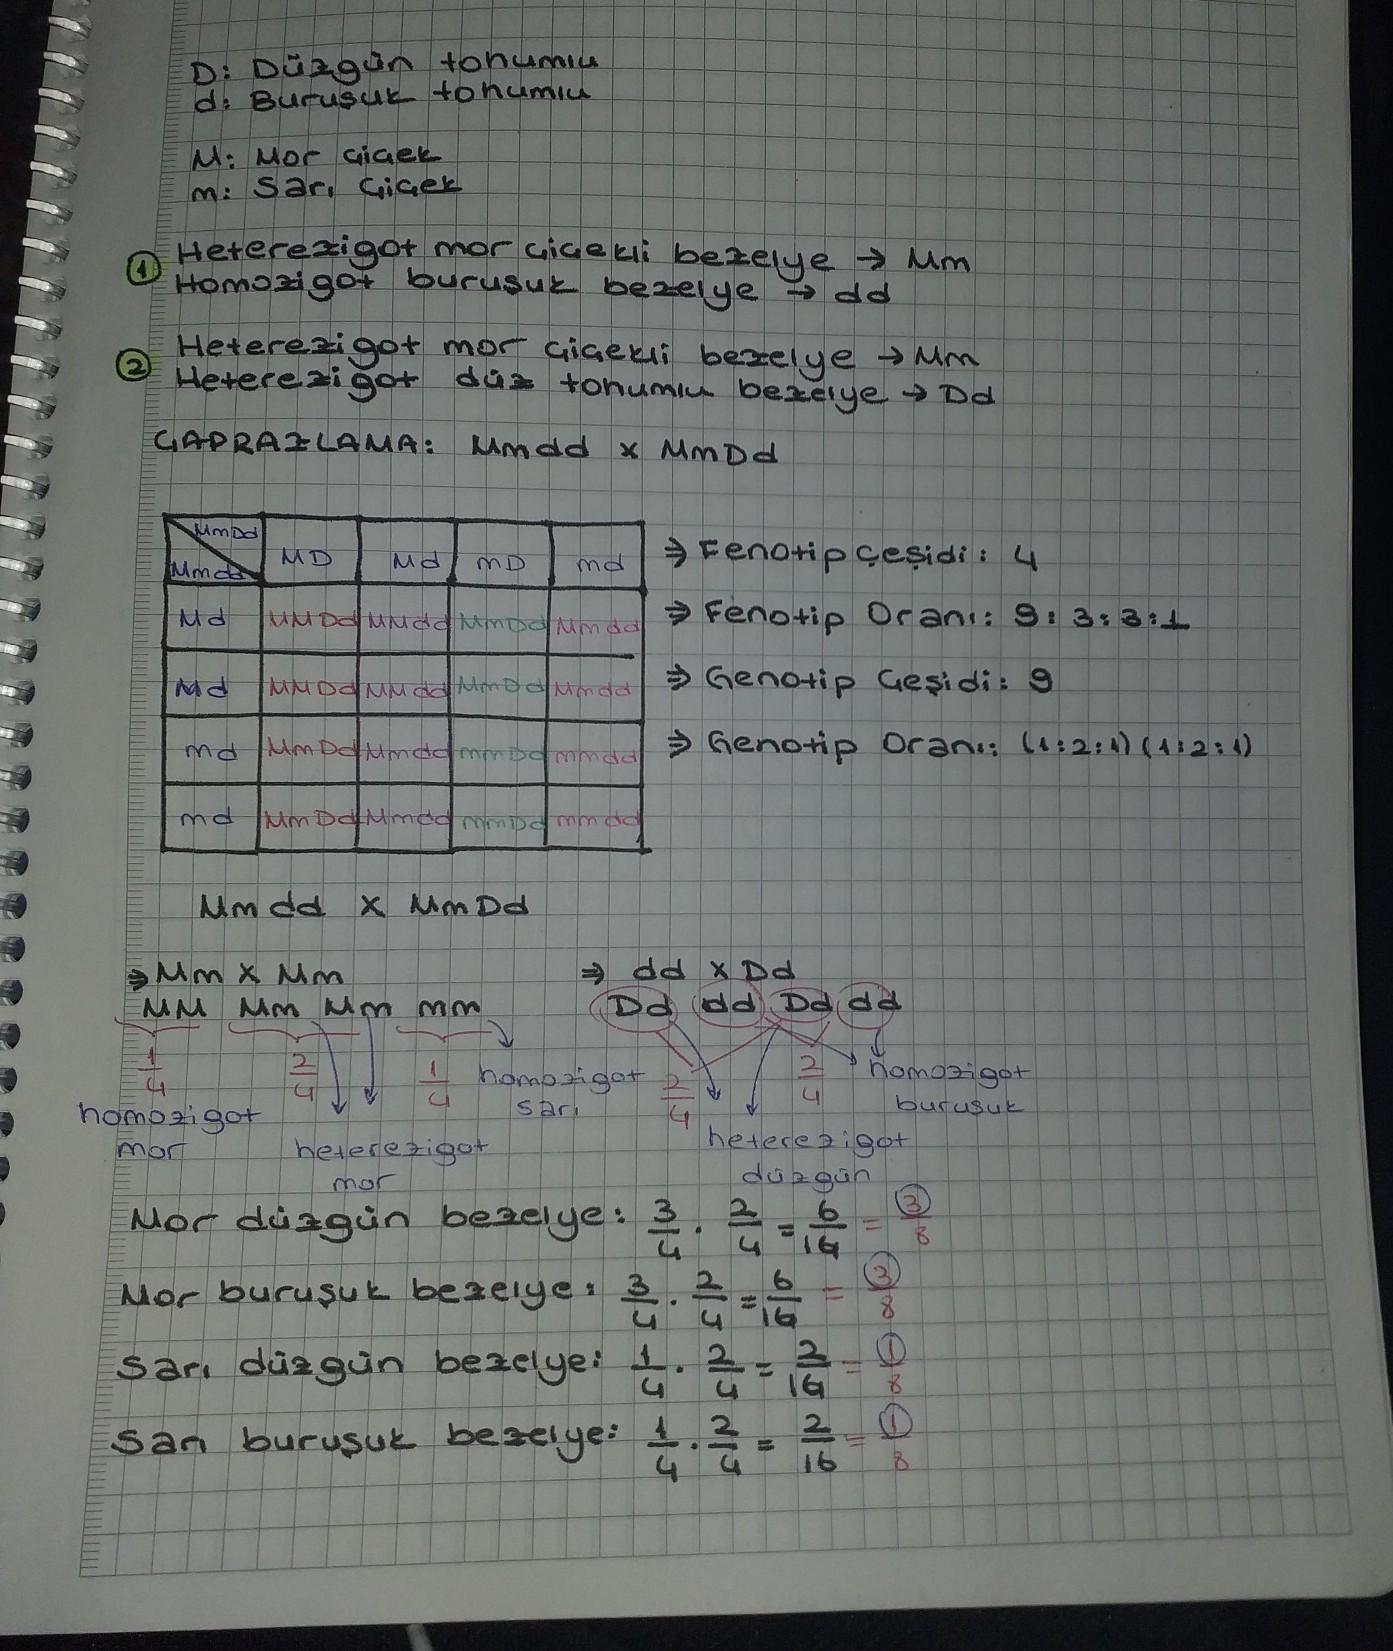 D: Düzgün tohumlu
d: Buruşuk tohumlu
M: Mor çiçek
m: Sarı çiçek
① Heterezigot mor çiçekli bezelye → Mm
Homozigot buruşuk bezelye → dd
② Heterezigot mor çiçekli bezelye → Mm
Heterezigot düz tohumlu bezelye → Dd
ÇAPRAZLAMA: Mmdd x MmDd
MmDd
Mmdd MD Md mD md
Md MMDd MMdd MmDd Mmdd
Md MMDd MMdd MmDd Mmdd
md MmDd Mmdd mmDd mmdd
md MmDd Mmdd mmDd mmdd
⇒ Fenotip Çeşidi: 4
⇒ Fenotip Oranı: 9:3:3:1
⇒ Genotip Çeşidi: 9
⇒ Genotip Oranı: (1:2:1) (1:2:1)
Mmdd x MmDd
⇒ Mm x Mm
MM Mm Mm mm
1/4 2/4 1/4
homozigot mor
heterezigot mor
homozigot sarı
⇒ dd x Dd
Dd dd Dd dd
2/4 2/4
heterezigot düzgün
homozigot buruşuk
Mor düzgün bezelye: 3/4 . 2/4 = 6/16 = 3/8
Mor buruşuk bezelye: 3/4 . 2/4 = 6/16 = 3/8
Sarı düzgün bezelye: 1/4 . 2/4 = 2/16 = 1/8
Sarı buruşuk bezelye: 1/4 . 2/4 = 2/16 = 1/8